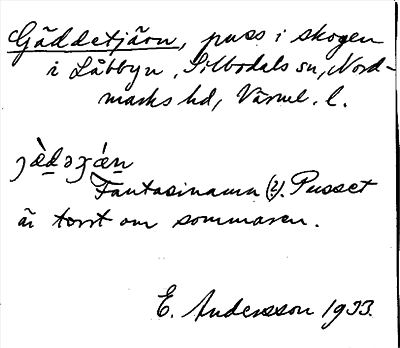 Gäddetjärn, puss i skogen
i Låbbyn, Silbodals sn, Nord-
marks hd, Värml. l.
Fantasinamn (?). Pusset
är torrt om sommaren.
E. Andersson 1933.